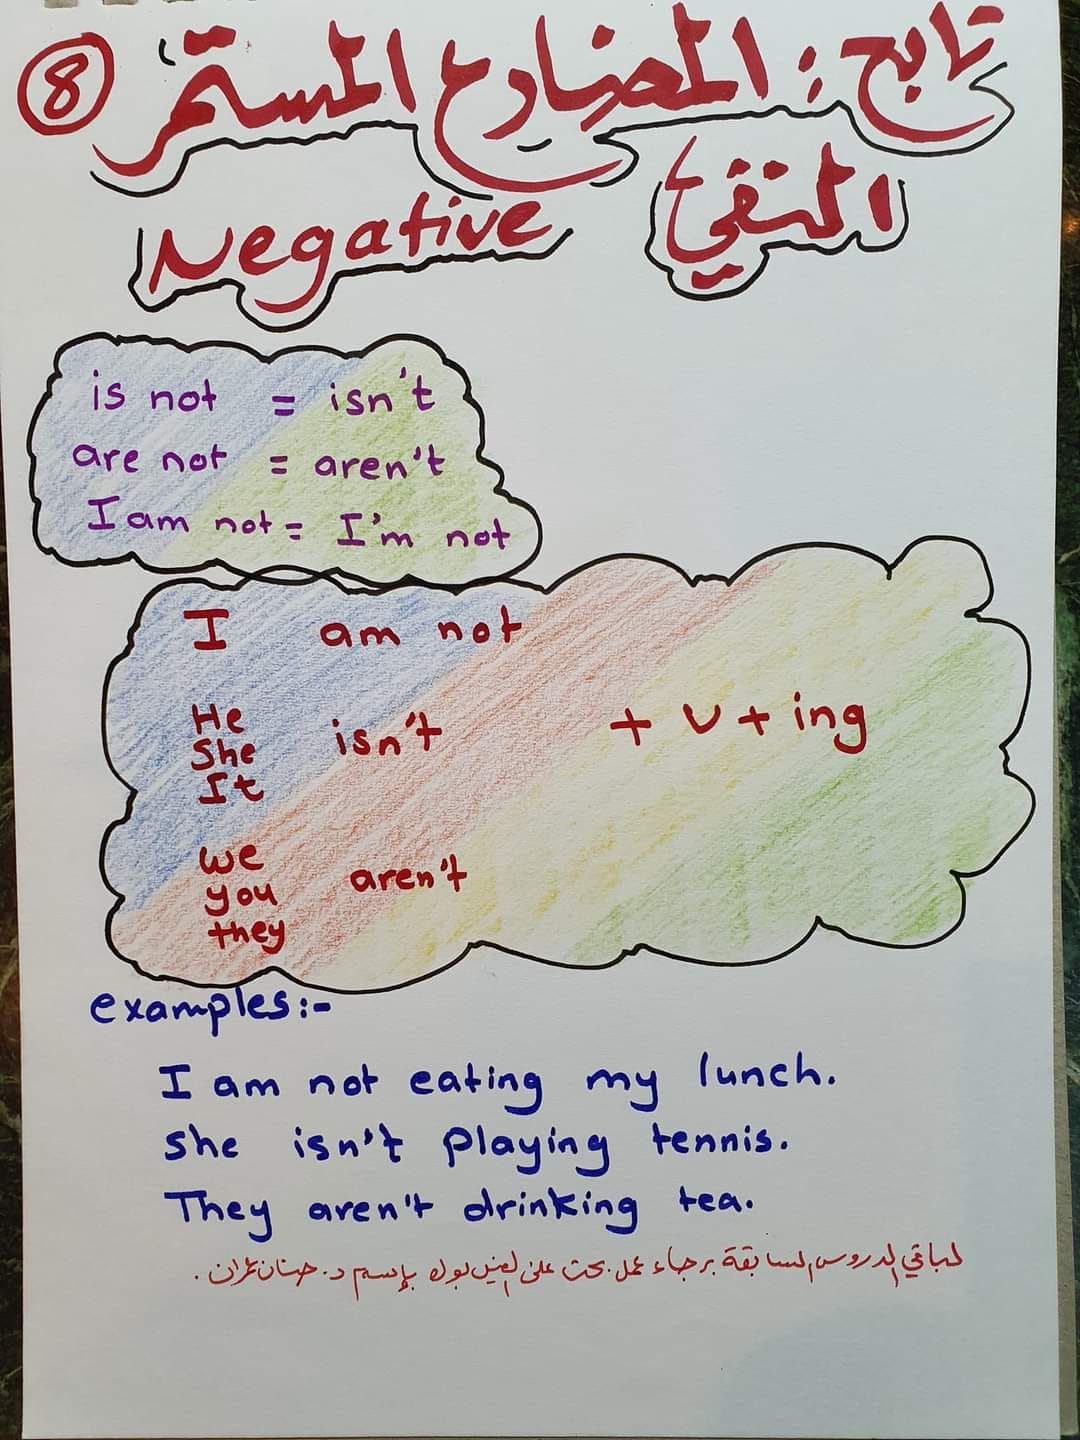 تابع : المضارع المستمر 8
المنفي Negative
is not = isn't
are not = aren't
I am not = I'm not
I am not
He
She isn't + v + ing
It
we
you aren't
they
examples:-
I am not eating my lunch.
She isn't playing tennis.
They aren't drinking tea.
لباقي الدروس السابقة برجاء عمل بحث على الفيس بوك بإسم د. حنان عمران .